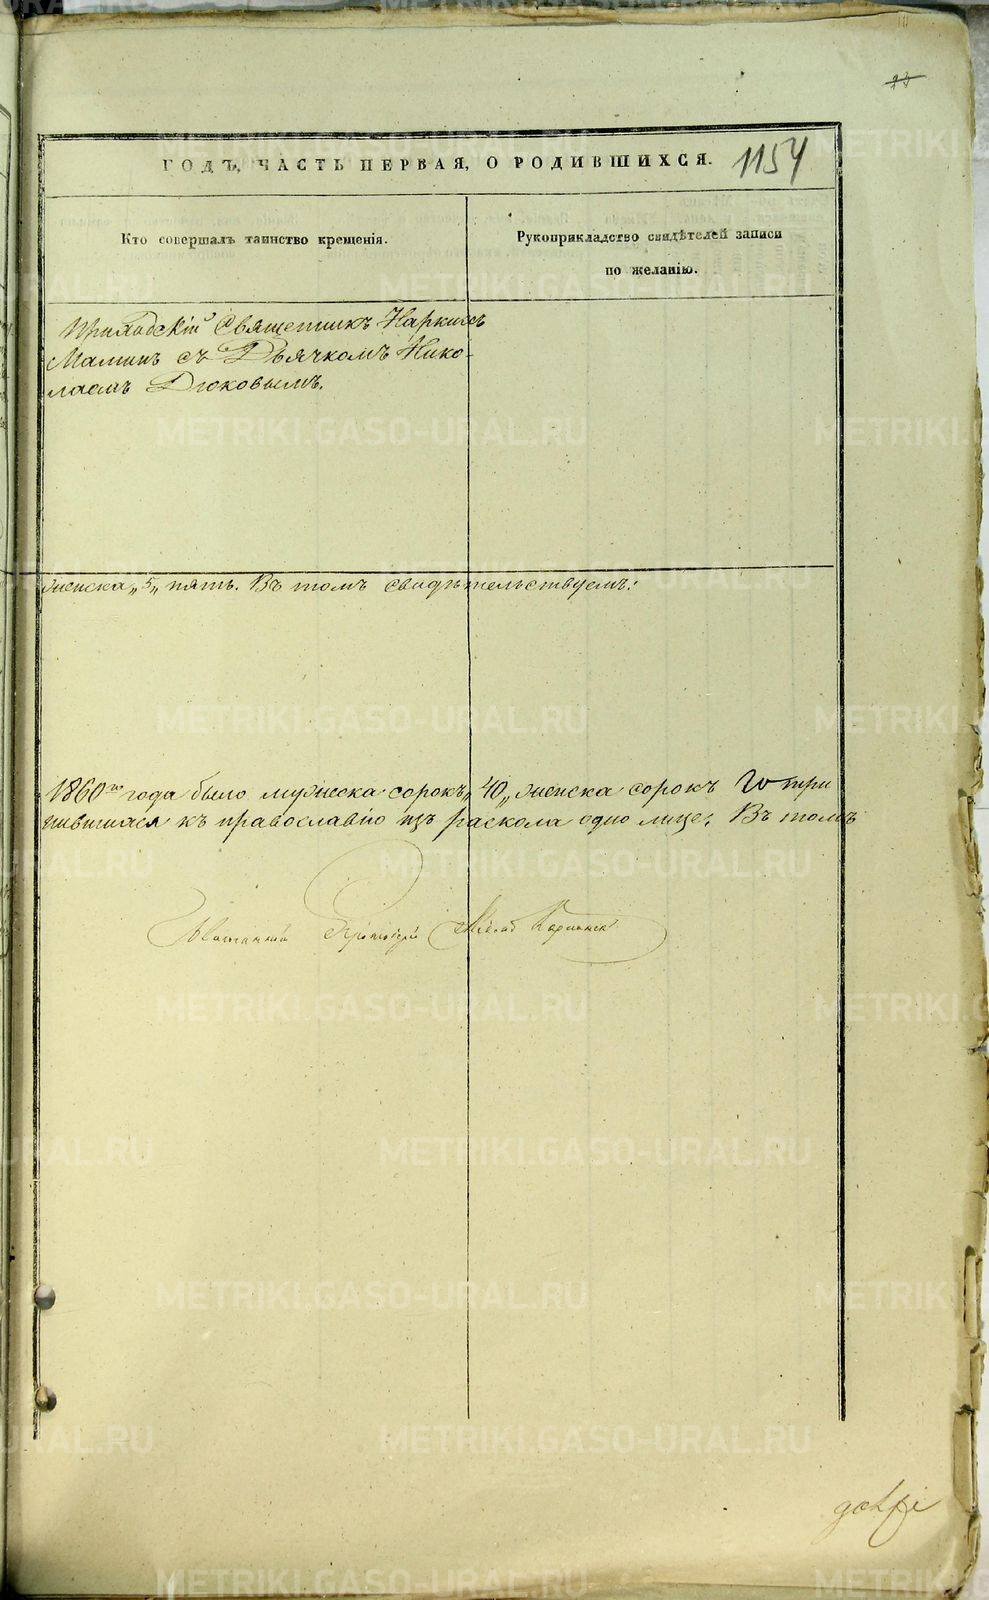 23
ГОДЪ, ЧАСТЬ ПЕРВАЯ, О РОДИВШИХСЯ.
1154
Кто совершалъ таинство крещенія.
Рукоприкладство свидѣтелей записи
по желанію.
Приходскій Священникъ Наркисъ
Маминъ съ Дьячкомъ Нико-
лаемъ Дюковымъ.
женска „5„ пять. Въ томъ свидѣтельствуемъ:
1860го года было мужеска сорокъ „40„ женска сорокъ
нившаяся къ православію изъ раскола одно лице. Въ томъ
METRIKI.GASO-URAL.RU